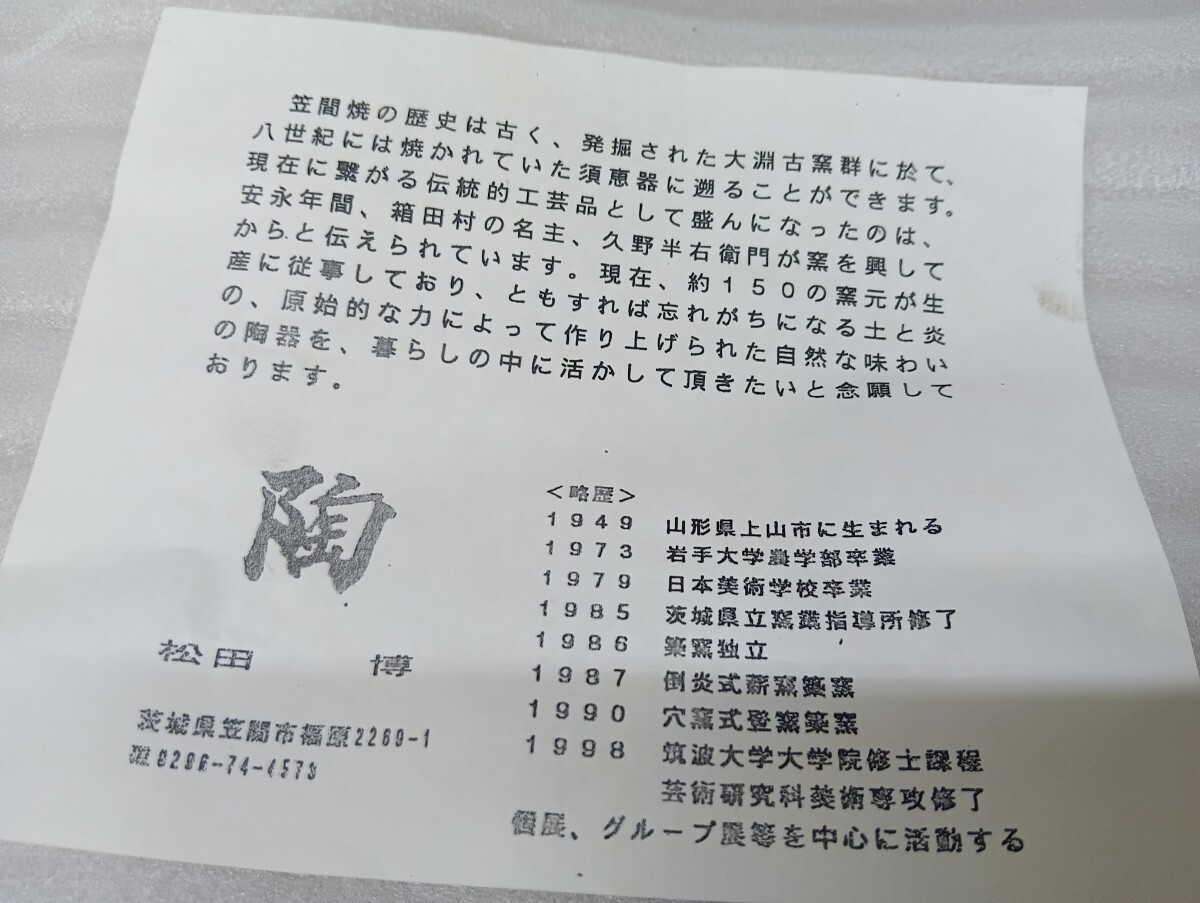 笠間焼の歴史は古く、発掘された大淵古窯群に於て、
八世紀には焼かれていた須恵器に遡ることができます。
現在に繋がる伝統的工芸品として盛んになったのは、
安永年間、箱田村の名主、久野半右衛門が窯を興して
からと伝えられています。現在、約150の窯元が生
産に従事しており、ともすれば忘れがちになる土と炎
の、原始的な力によって作り上げられた自然な味わい
の陶器を、暮らしの中に活かして頂きたいと念願して
おります。
陶
松田 博
茨城県笠間市福原2269-1
0296-74-4573
<略歴>
1949 山形県上山市に生まれる
1973 岩手大学農学部卒業
1979 日本美術学校卒業
1985 茨城県立窯業指導所修了
1986 築窯独立
1987 倒炎式薪窯築窯
1990 穴窯式登窯築窯
1998 筑波大学大学院修士課程
芸術研究科美術専攻修了
個展、グループ展等を中心に活動する